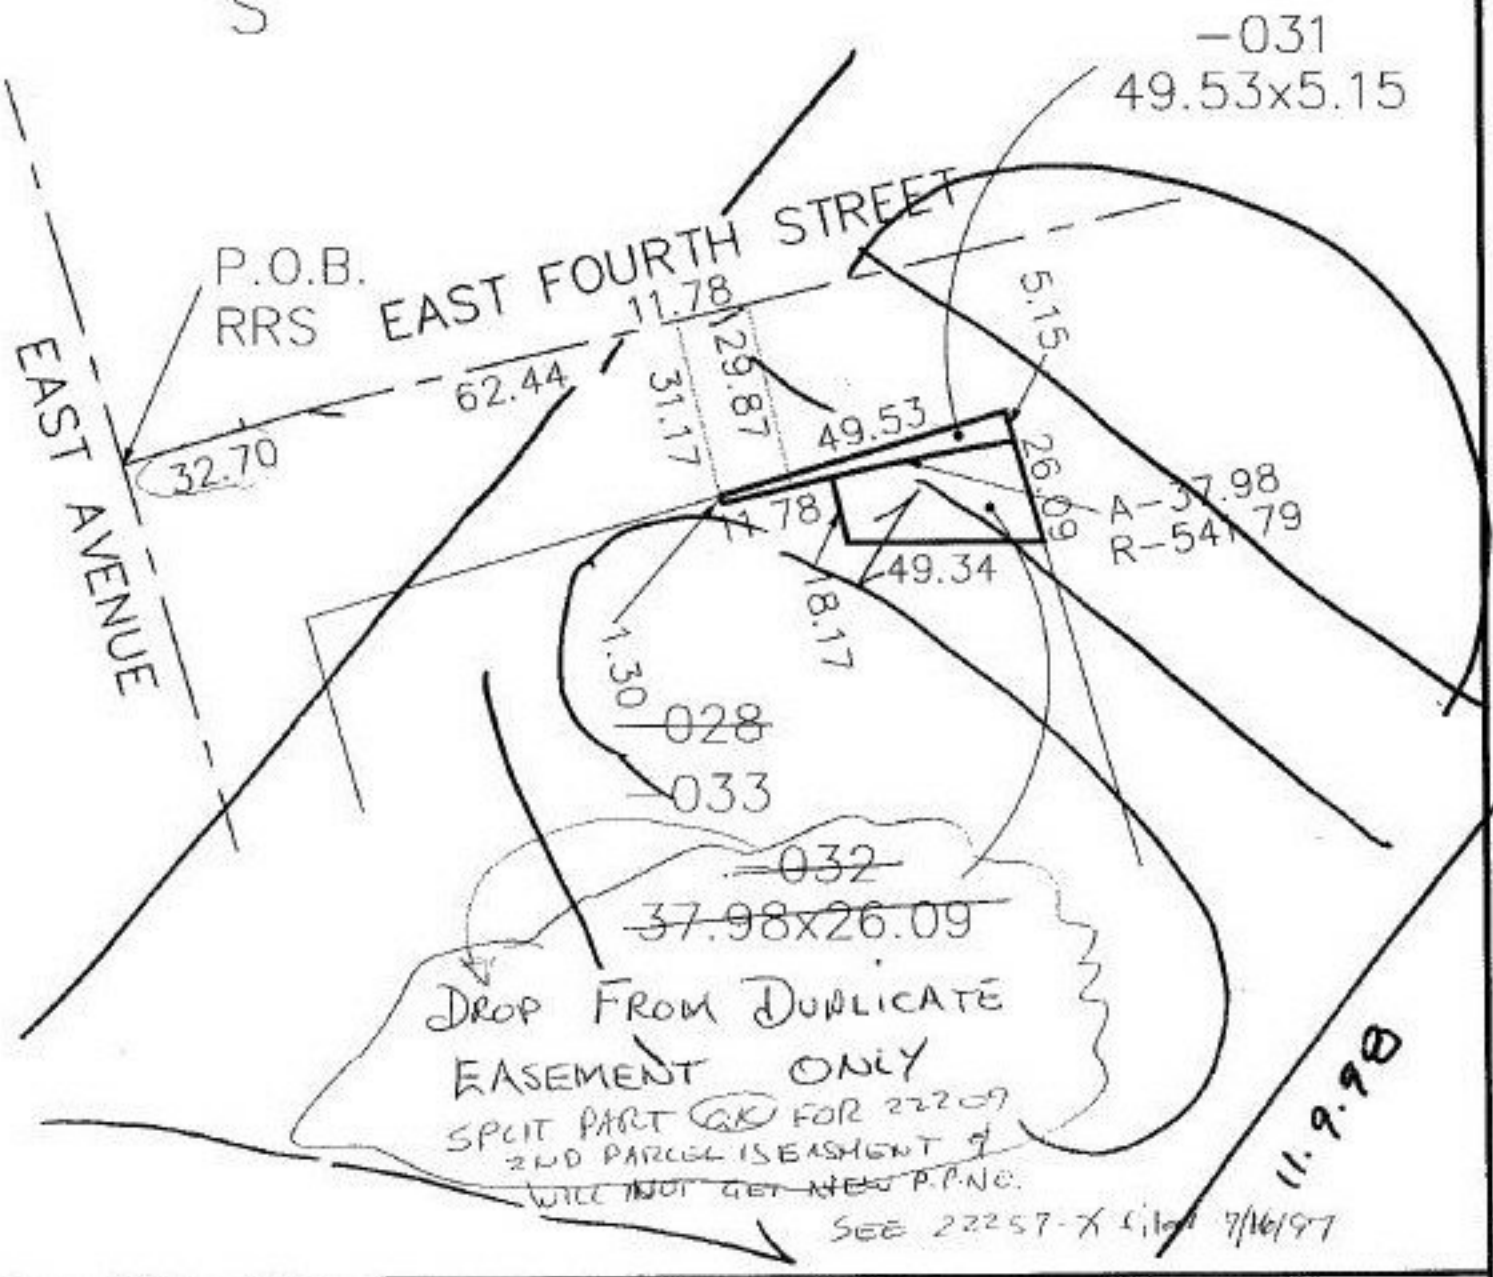 S
-031
49.53x5.15
P.O.B.
RRS
EAST FOURTH STREET
EAST AVENUE
11.78
62.44
32.70
31.17
29.87
5.15
49.53
26.09
A-37.98
R-541.79
11.78
49.34
18.17
1.30
-028
-033
-032
37.98x26.09
DROP FROM DUPLICATE
EASEMENT ONLY
SPLIT PART OK FOR 22209
2ND PARCEL IS EASMENT &
WILL NOT GET NEW P.P.NO.
SEE 22257-X filed 7/16/97
11.9.98